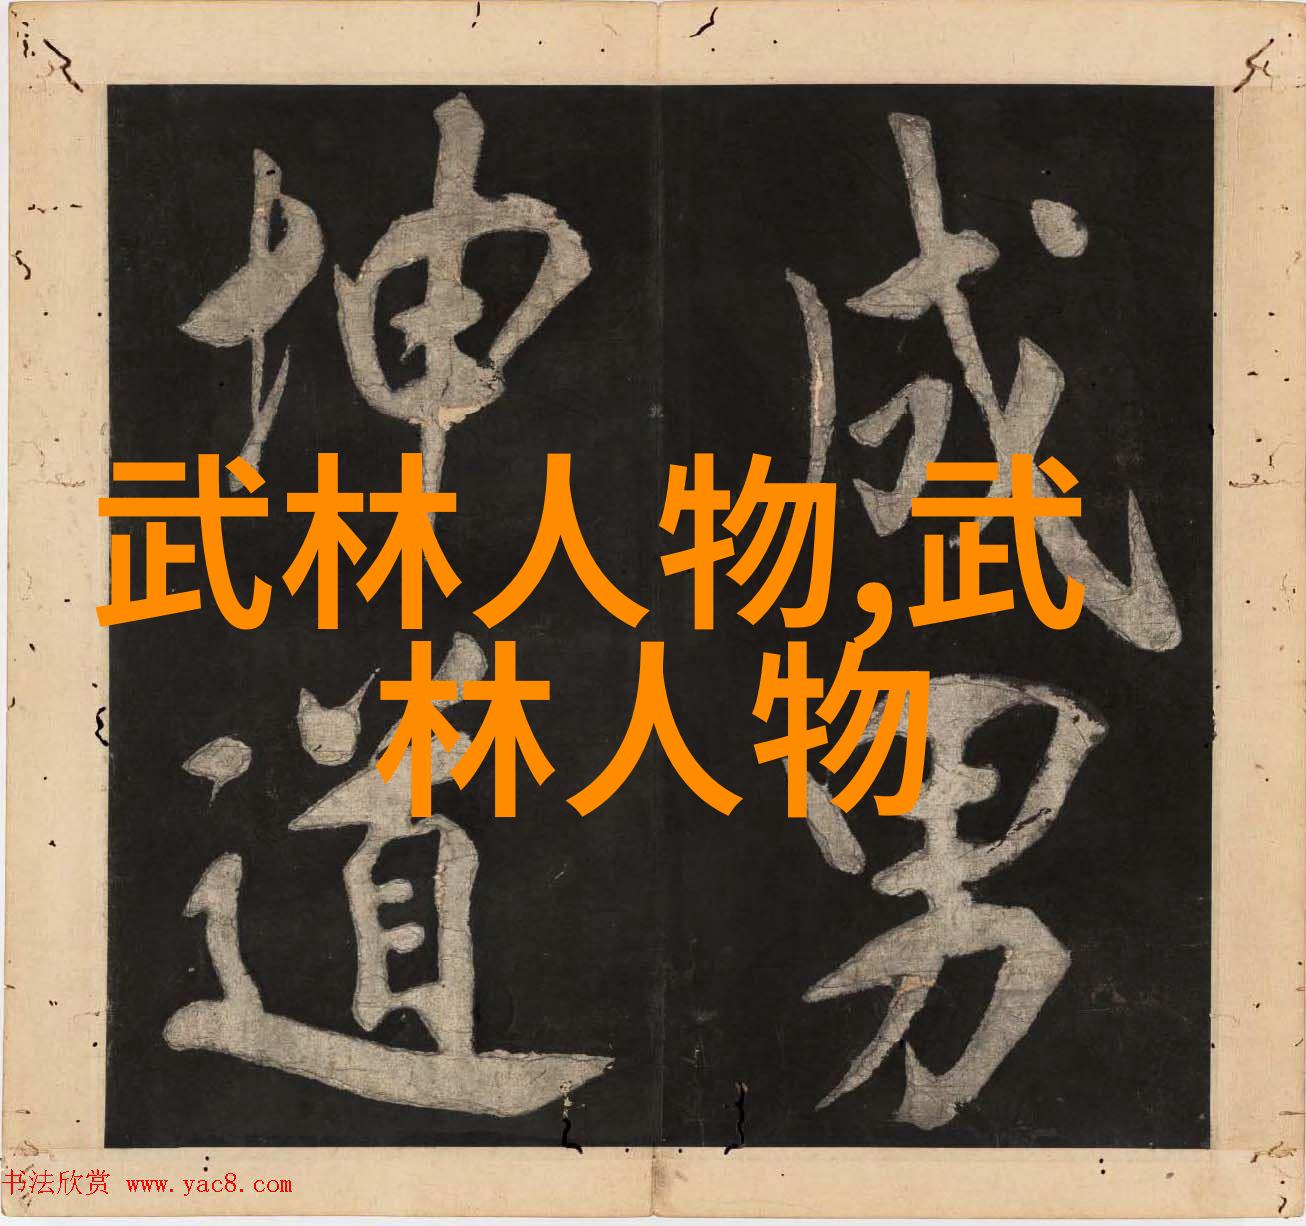 成男
坤道
武林人物,武
林人物
书法欣赏 www.yac8.com